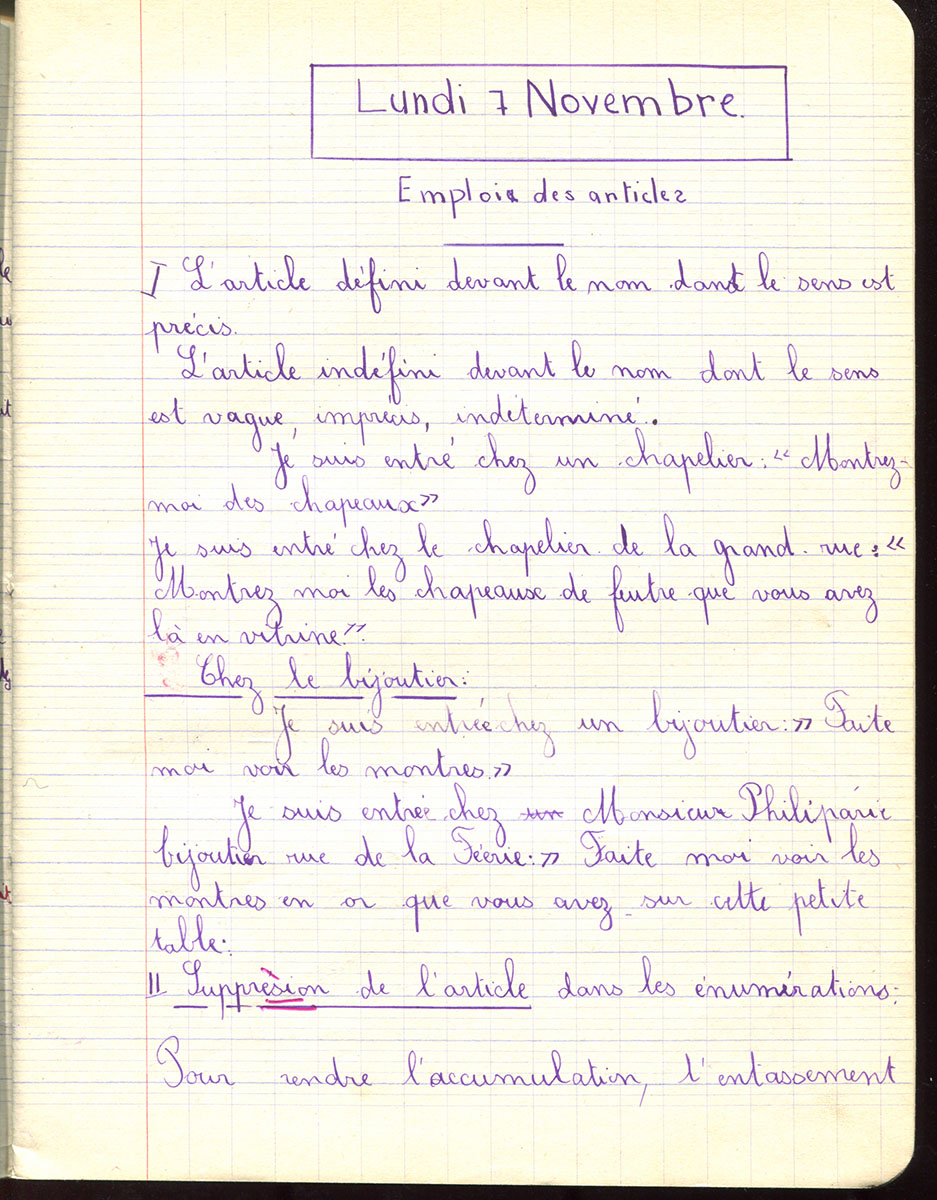 Lundi 7 Novembre.
Emplois des articles
I L'article défini devant le nom dont le sens est
précis.
L'article indéfini devant le nom dont le sens
est vague, imprécis, indéterminé.
Je suis entré chez un chapelier : « Montrez-
moi des chapeaux »
Je suis entré chez le chapelier de la grand rue : «
Montrez moi les chapeause de feutre que vous avez
là en vitrine ».
Chez le bijoutier :
Je suis entrée chez un bijoutier : » Faite
moi voir les montres. »
Je suis entrée chez un Monsieur Philiparie
bijoutier rue de la Féérie : » Faite moi voir les
montres en or que vous avez sur cette petite
table :
II Supprèsion de l'article dans les énumérations :
Pour rendre l'accumulation, l'entassement